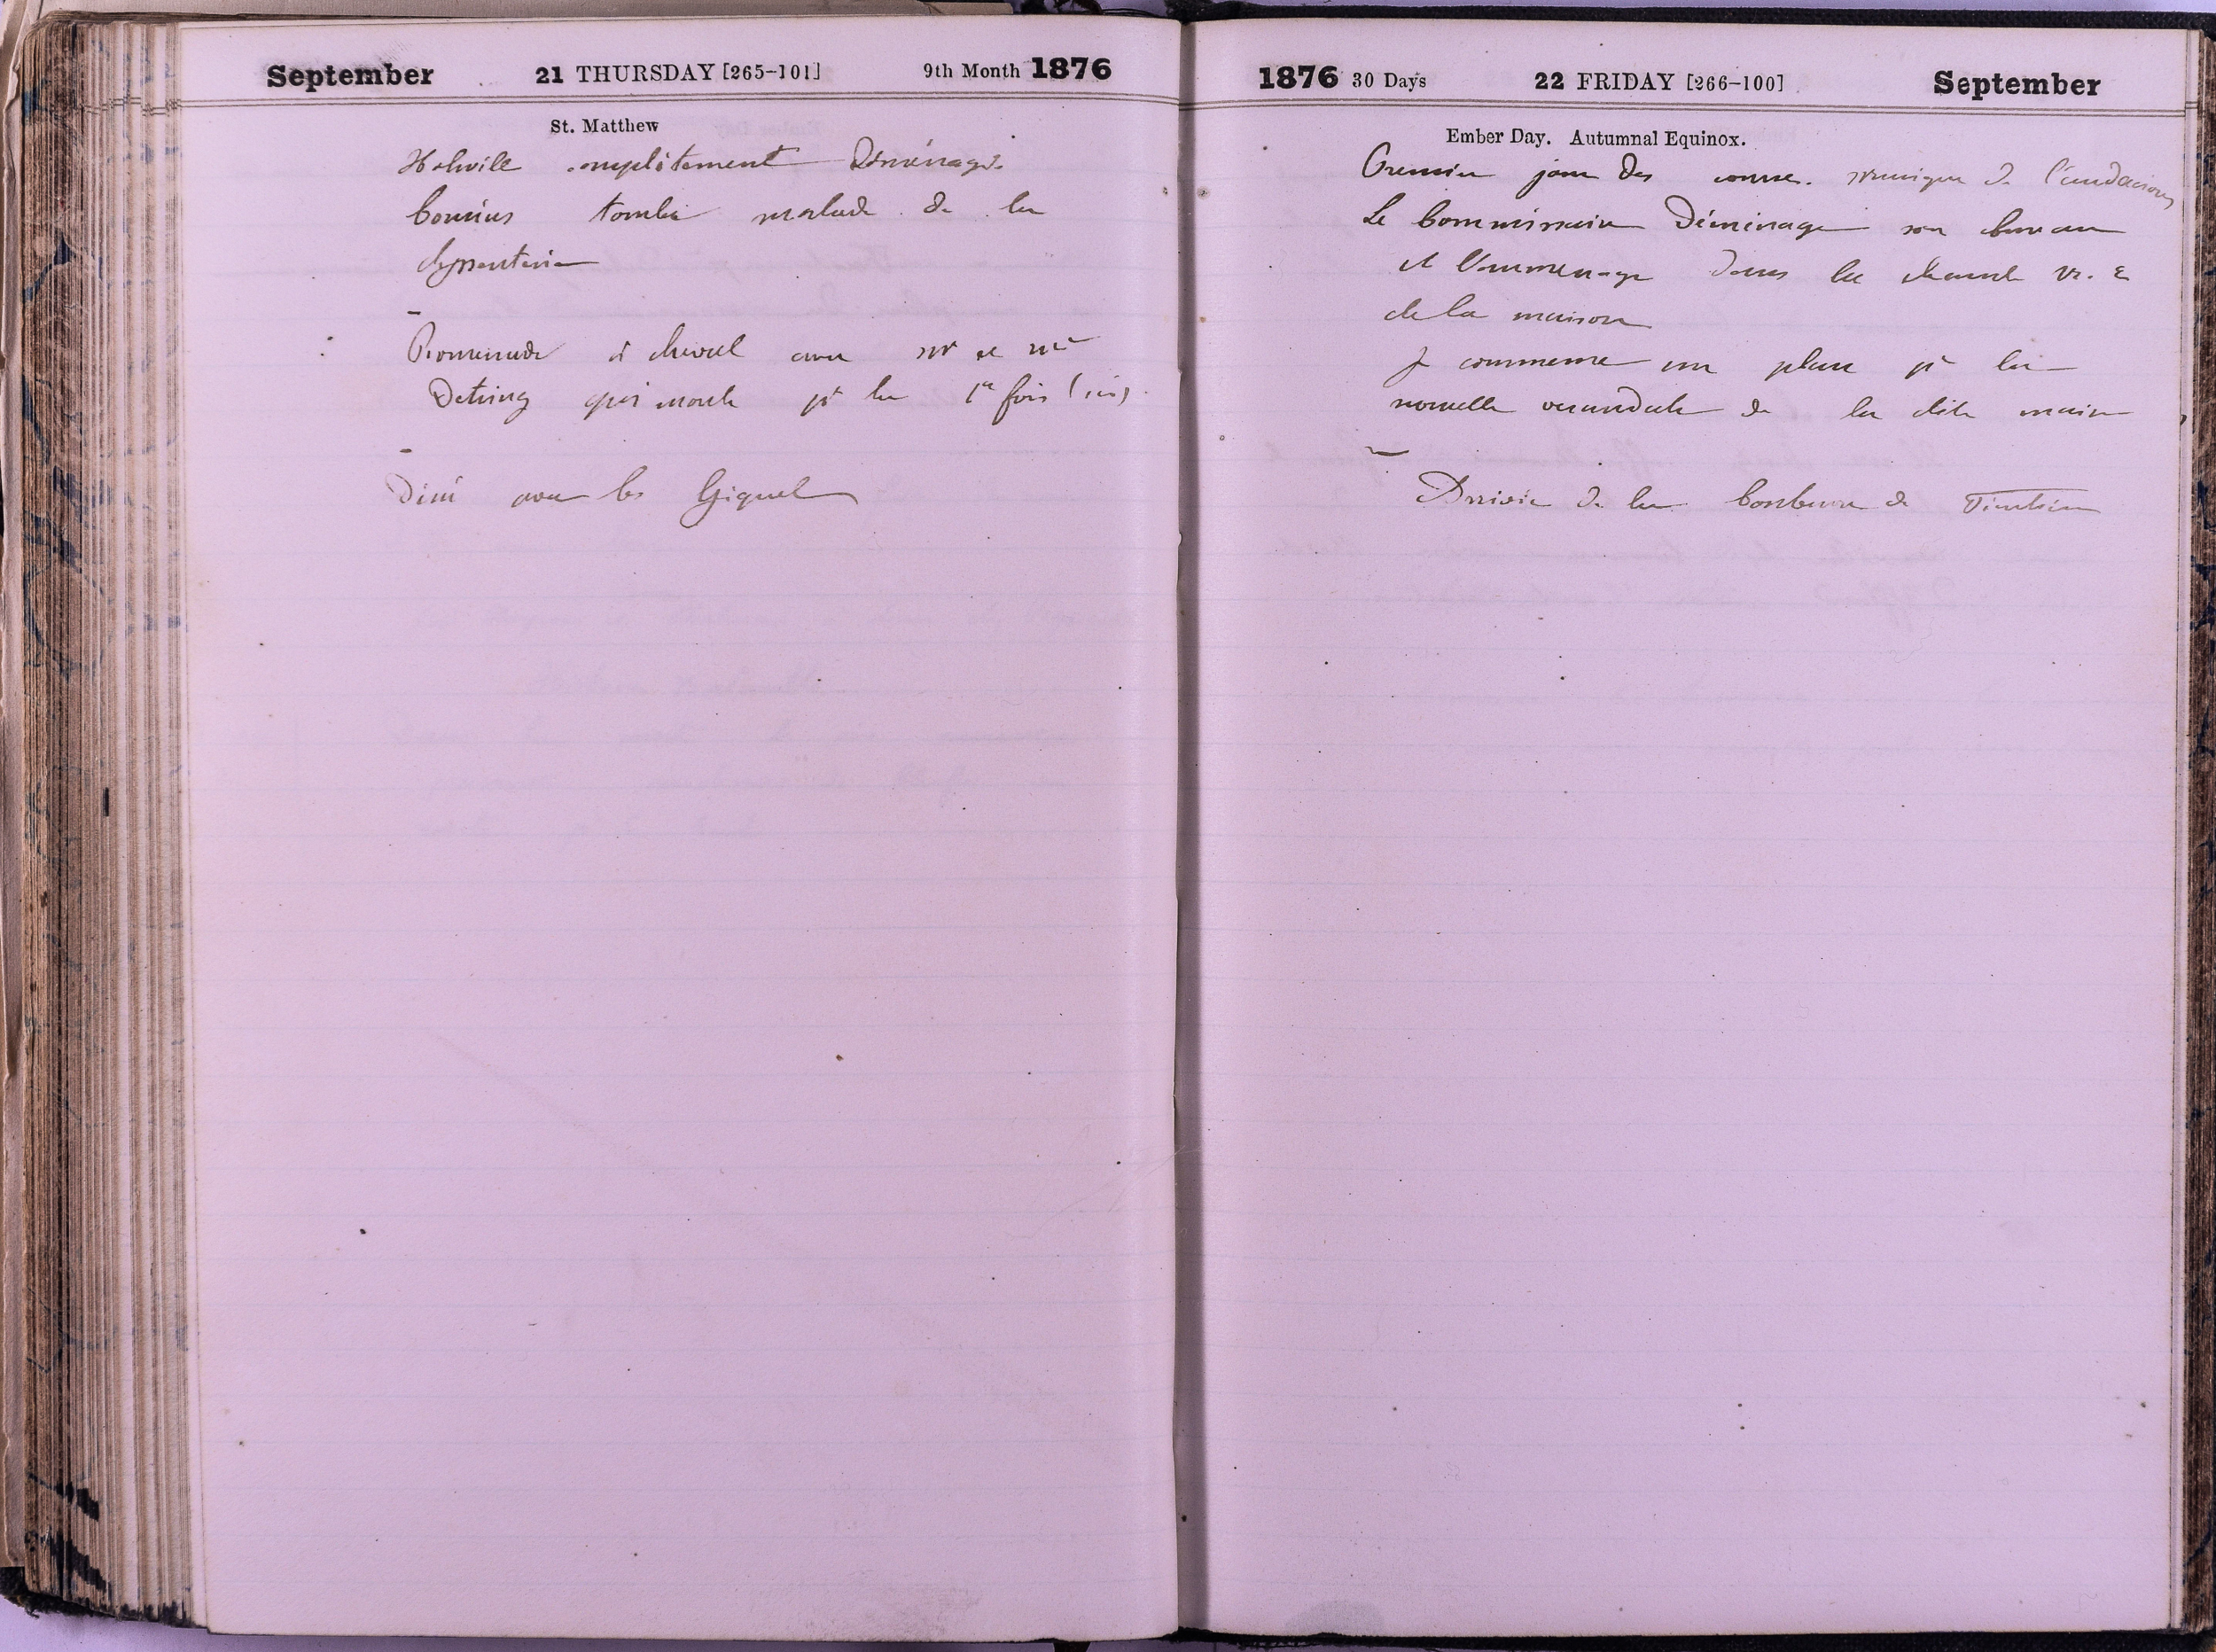 September 21 THURSDAY [265-101] 9th Month 1876
St. Matthew
Holwill complètement Déménagé.
tombé malade de la
dyssenterie
Promenade à cheval avec Mr et Me
Detring qui monte pr la 1re fois (ici)
Diné avec les Giquel
1876 30 Days 22 FRIDAY [266-100] September
Ember Day. Autumnal Equinox.
Premier jour des courses. musique de l'audacious
Le Commissaire Déménage son bureau
et l'emmenage dans la chambre
de la maison
Je commence un plan pr la
nouvelle verandah de la dite maison
Arrivée de la de Tientsin